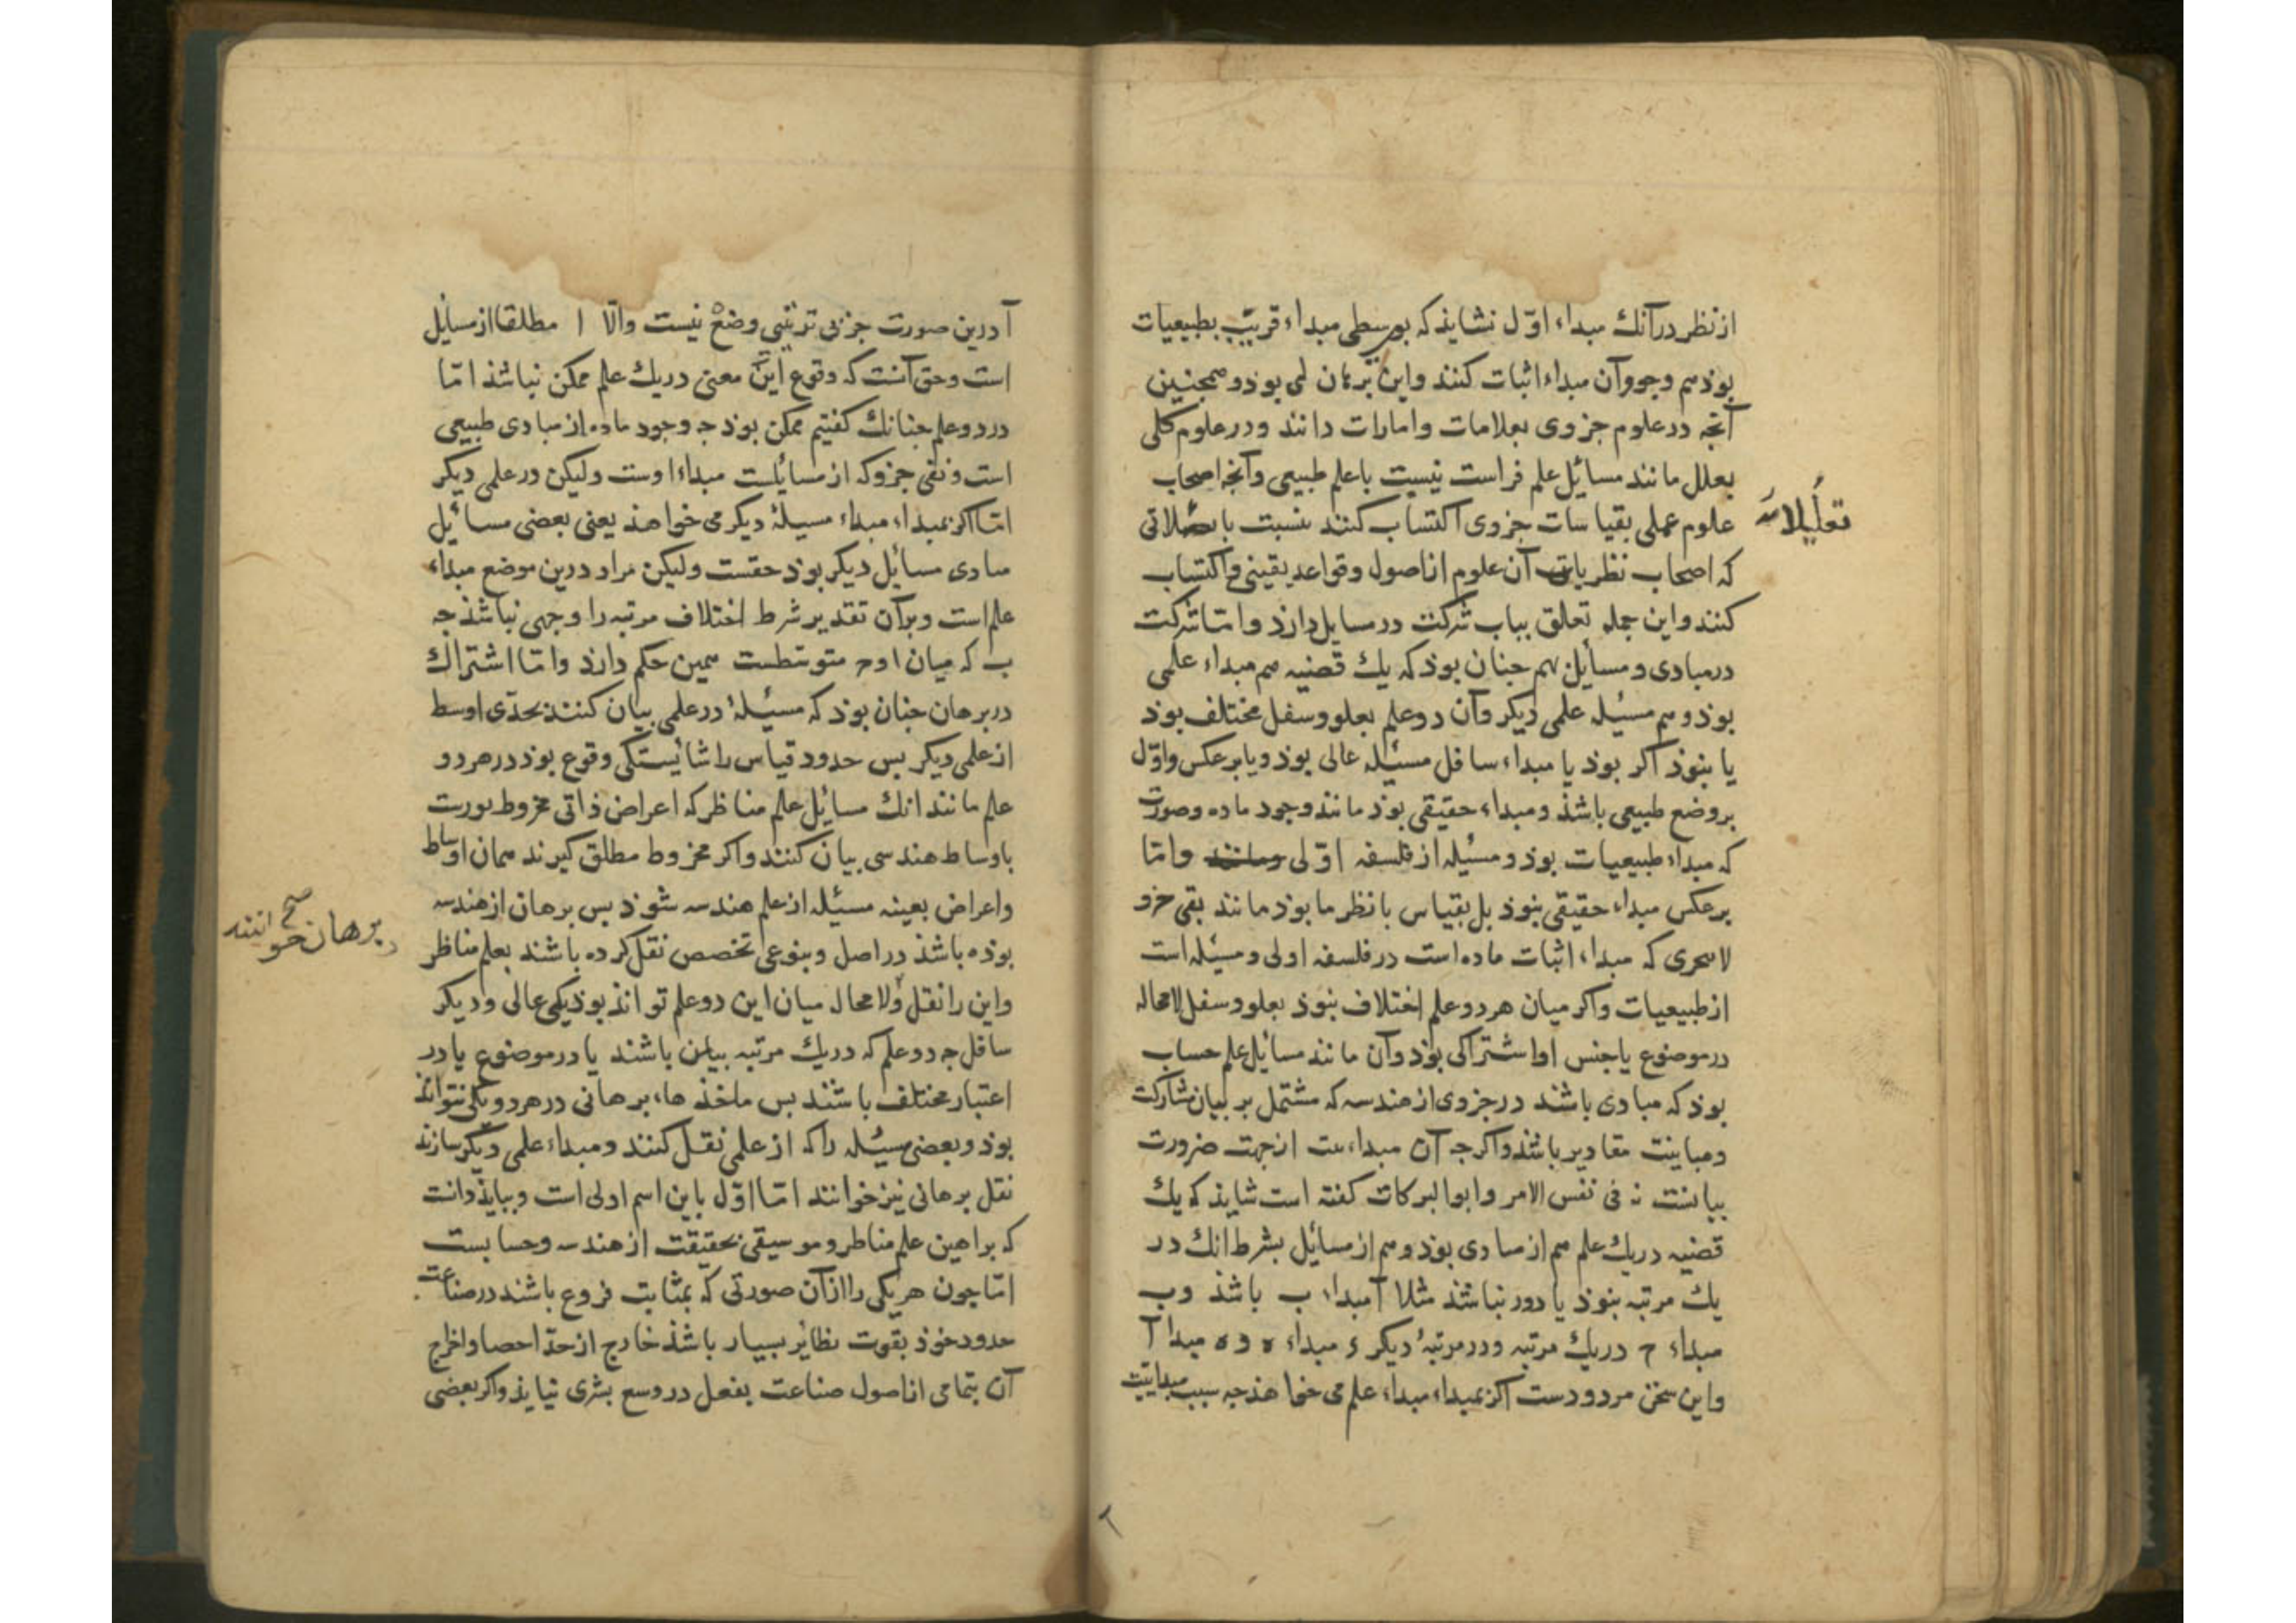 از نظر در آنك مبداء اوّل نشاید که بوسطی مبداء قریب بطبیعیات
بوذ هم وجود آن مبداء اثبات کنند واین برهان لمی بوذ و همجنین
آنجه در علوم جزوی بعلامات وامارات دانند ودر علوم کلی
بعلل مانند مسائل علم فراست نسبت با علم طبیعی وآنجه اصحاب
علوم عملی بقیاسات جزوی اکتساب کنند بنسبت با
تعلیلاتی
که اصحاب نظریات آن علوم از اصول وقواعد یقینی اکتساب
کنند واین جمله تعلق بباب شرکت در مسایل دارذ وامّا شرکت
در مبادی ومسایل بهم جنان بوذ که یك قضیه هم مبداء علمی
بوذ وهم مسئله علمی دیکر وآن دو علم بعلو وسفل مختلف بوذ
یا بنوذ اکر بوذ یا مبداء سافل مسئله عالی بوذ ویا برعکس واوّل
بر وضع طبیعی باشذ ومبداء حقیقی بوذ مانند وجود ماده وصورت
که مبداء طبیعیات بوذ ومسئله از فلسفه اوّلی وامّا
برعکس مبداء حقیقی بنوذ بل بقیاس با نظر ما بوذ مانند نفی جزو
لا یتجزی که مبداء اثبات ماده است در فلسفه اولی ومسئله است
از طبیعیات واکر میان هر دو علم اختلاف بنوذ بعلو وسفل لامحاله
در موضوع یا جنس او اشتراکی بوذ وآن مانند مسائل علم حساب
بوذ که مبادی باشند در جزوی از هندسه که مشتمل بر بیان مشارکت
ومباینت مقادیر باشذ واکرجه آن مبدائیت از جهت ضرورت
بیانست نه فی نفس الامر وابو البرکات کفته است شاید که یك
قضیه در یك علم هم از مبادی بوذ وهم از مسائل بشرط انك در
یك مرتبه بنوذ یا دور نباشذ مثلا آ مبداء ب باشذ وب
مبداء ح در یك مرتبه ودر مرتبهٔ دیکر ء مبداء ه و ه مبدا آ
واین سخن مردودست اکر بمبداء مبداء علم می خواهذ جه سبب مبدائیت
آ درین صورت جز بی ترتیبی وضع نیست والّا ا مطلقا از مسایل
است وحق آنست که وقوع این معنی در یك علم ممکن نباشذ امّا
در دو علم جنانك کفتیم ممکن بوذ جه وجود ماده از مبادی طبیعی
است ونفی جزو که از مسایلست مبداء اوست ولیکن در علمی دیکر
امّا اکر بمبداء مبداء مسیلهٔ دیکر می خواهذ یعنی بعضی مسائل
مبادی مسائل دیکر بوذ حقست ولیکن مراد درین موضع مبداء
علم است وبر آن تقدیر شرط اختلاف مرتبه را وجهی نباشذ جه
ب که میان ا و ح متوسطست همین حکم دارذ وامّا اشتراك
در برهان جنان بوذ که مسئلهٔ در علمی بیان کنند بحدّی اوسط
از علمی دیکر بس حدود قیاس را شایستکی وقوع بوذ در هر دو
علم مانند انك مسائل علم مناظر که اعراض ذاتی مخروط بورت
باوساط هندسی بیان کنند واکر مخروط مطلق کیرند همان اوساط
واعراض بعینه مسئله از علم هندسه شوذ بس برهان از هندسه
بوذه باشذ در اصل وبنوعی تخصص نقل کرده باشند بعلم مناظر
واین را نقل
برهان خوانند صح
ولا محال میان این دو علم تواند بوذ یکی عالی ودیکر
سافل جه دو علم که در یك مرتبه باشند یا در موضوع یا در
اعتبار مختلف باشند بس ماخذهاء برهانی در هر دو یکی نتواند
بوذ وبعضی مسیله را که از علمی نقل کنند ومبداء علمی دیکر سازند
نقل برهانی نیز خوانند امّا اوّل باین اسم اولی است وبباید دانست
که براهین علم مناظر وموسیقی بحقیقت از هندسه وحسابست
امّا جون هر یکی را ازان صورتی که بمثابت فروع باشند در صناعت
حدود خوذ بقوت نظائر بسیار باشذ خارج از حدّ احصا واخراج
آن بتمامی از اصول صناعت بفعل در وسع بشری نیاید واکر بعضی